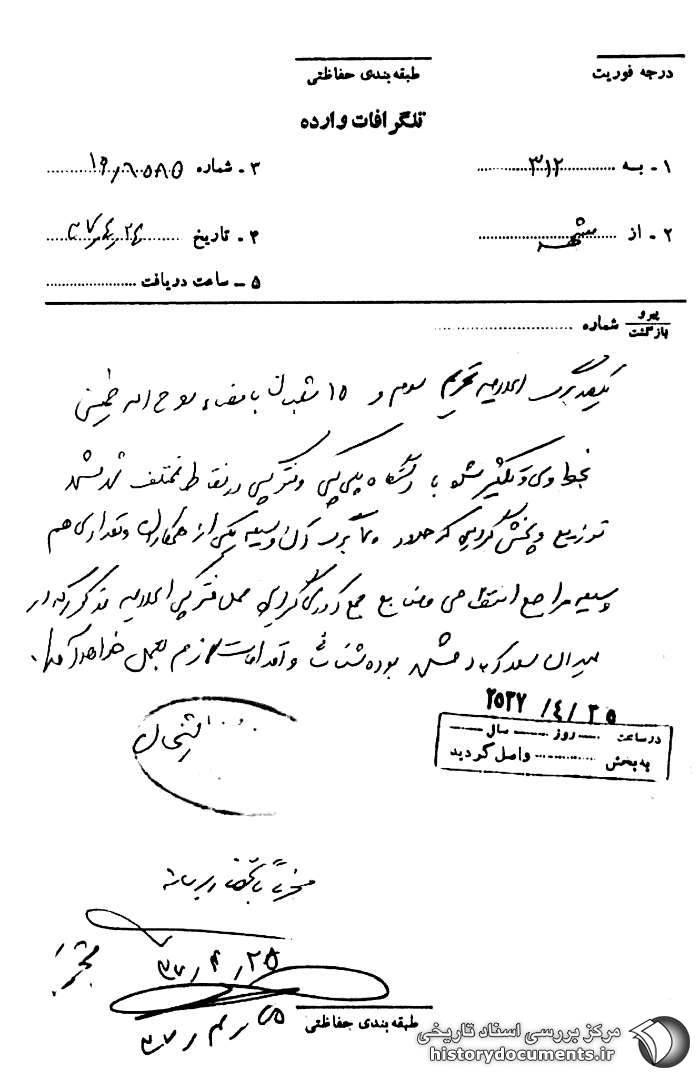 درجه فوریت
طبقه‌بندی حفاظتی
تلگرافات وارده
۱ - به ۳۱۲
۳ - شماره ۱۹/۶۵۸۵
۲ - از مشهد
۴ - تاریخ ۳۷/۴/۲۴
۵ - ساعت دریافت
پیرو
بازگشت
شماره
یکصد برگ اعلامیه تحریم سوم و ۱۵ شعبان با امضاء روح اله خمینی
بخط وی و تکثیر شده با دستگاه پلی کپی و فتوکپی در نقاط مختلف شهر مشهد
توزیع و پخش گردیده که حدود ۲۰ برگ آن وسیله یکی از همکاران و تعدادی هم
وسیله مراجع انتظامی و منابع جمع آوری گردیده محل فتوکپی اعلامیه مذکور که در
میدان سعدآباد مشهد بوده شناسائی و اقدامات لازم بعمل خواهد آمد.
۲۵۳۷ /۴/ ۲۵
در ساعت روز سال
به بخش واصل گردید
۳۷/۴/۲۵
۳۷/۴/۲۵
طبقه‌بندی حفاظتی
مرکز بررسی اسناد تاریخی
historydocuments.ir